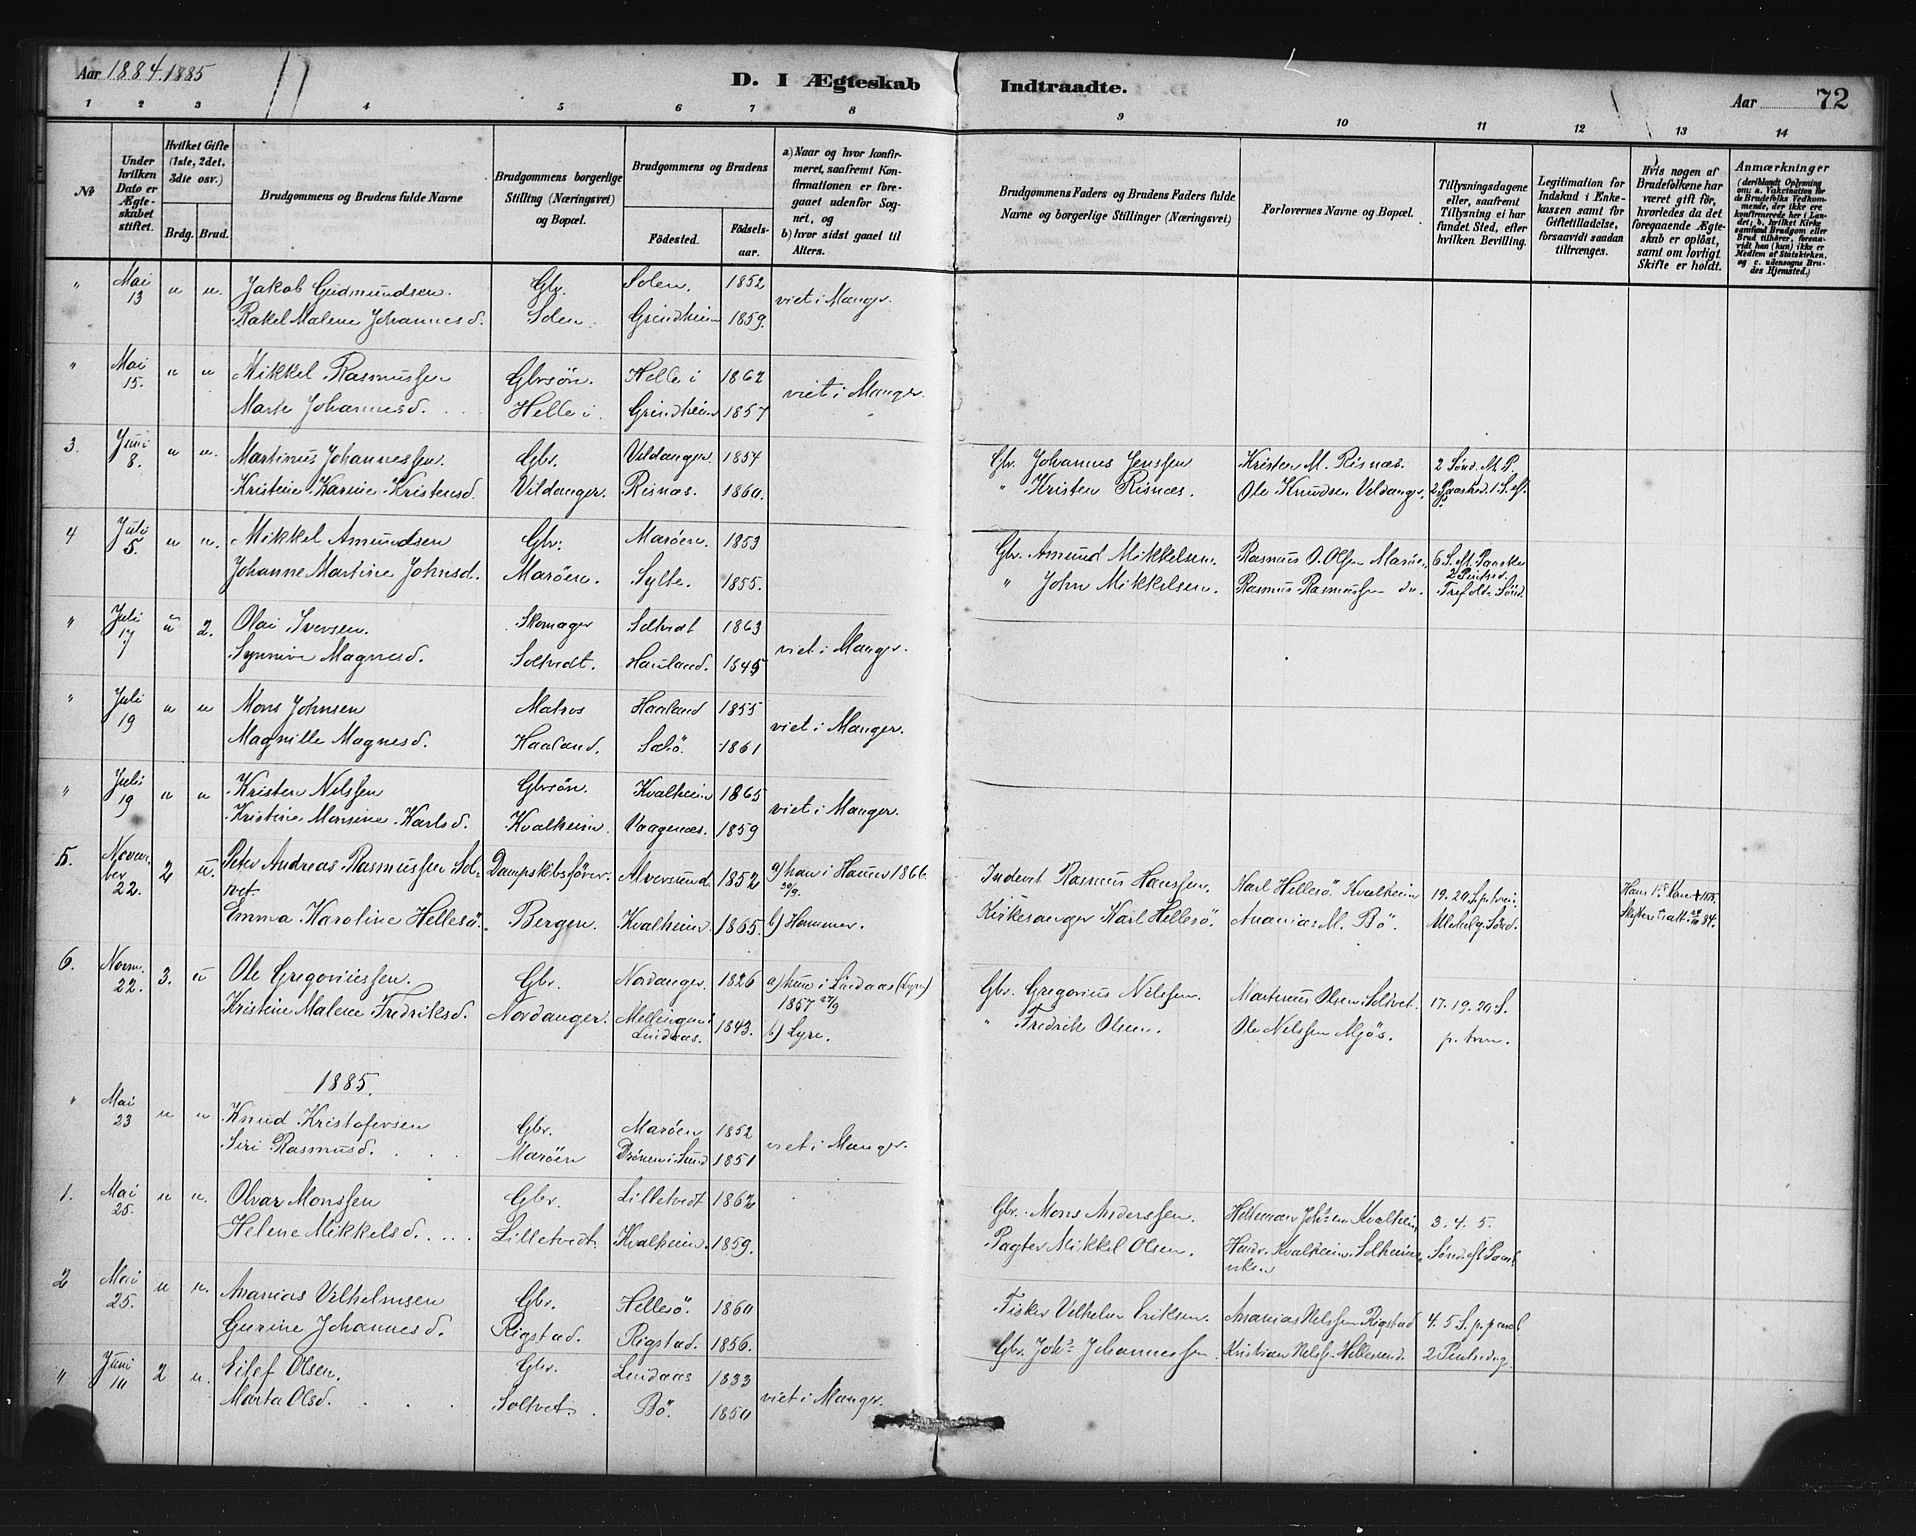 Aar 1884. 1885
D. I Ægteskab Indtraadte.
Aar 72
1 2 3 4 5 6 7 8 9 10 11 12 13 14
№
Under hvilken Dato er Ægteskabet stiftet.
Hvilket Gifte (1ste, 2det, 3die osv.)
Brdg. Brud.
Brudgommens og Brudens fulde Navne
Brudgommens borgerlige Stilling (Næringsvei) og Bopæl.
Brudgommens og Brudens
Födested. Födselsaar.
a) Naar og hvor konfirmeret, saafremt Konfirmationen er foregaaet udenfor Sognet, og
b) hvor sidst gaaet til Alters.
Brudgommens Faders og Brudens Faders fulde Navne og borgerlige Stillinger (Næringsvei)
Forlovernes Navne og Bopæl.
Tillysningsdagene eller, saafremt Tillysning ei har fundet Sted, efter hvilken Bevilling.
Legitimation for Indskud i Enkekassen samt for Giftetilladelse, forsaavidt saadan tiltrænges.
Hvis nogen af Brudefolkene har været gift för, hvorledes da det foregaaende Ægteskab er oplöst, samt om lovligt Skifte er holdt.
Anmærkninger
(deriblandt Oplysning om: a. Vakcination for de Brudefolks Vedkommende, der ikke ere konfirmerede her i Landet; b. hvilket Kirkesamfund Brudgom eller Brud tilhörer, forsaavidt han (hun) ikke er Medlem af Statskirken, og c. udensogns Brudes Hjemsted.)
" Mai 13 u u. Jakob Gudmundsen. Gbr. Solen. 1852 viet i Manger.
Rakel Malene Johannesd. Solen. Grindheim 1859.
" Mai 15. u u Mikkel Rasmussen Gbrsön. Helle i 1862 viet i Manger.
Marte Johannesd. Helle i Grindheim 1857
3. Juni 8. u u. Martinus Johannessen. Gbr. Vildanger. 1854 Gbr. Johannes Jenssen Kristen M. Risnæs. 2 Sönd. M. P.
Kristine Karine Kristensd. Vildanger. Risnæs. 1860. " Kristen Risnæs. Ole Knudsen Vildanger.
4 Juli 5. u u. Mikkel Amundsen Gbr. Maröen. 1853 Gbr. Amund Mikkelsen. Rasmus O. Olsen Maröe.
Johanne Martine Johnsd. Maröen. Sylte. 1855. " John Mikkelsen. Rasmus Rasmussen do. Trefoldt. Sönd.
" Juli 17 u 2. Olai Iversen. Skomager Soltvedt 1863 viet i Manger.
Synnive Magnesd. Soltvedt. Hauland. 1845
" Juli 19 u u Mons Johnsen Matros Haaland 1855 viet i Manger.
Magnille Magnesd. Haaland. Sæbö. 1861
" Juli 19 u u Kristen Nilssen Gbrsön. Kvalheim 1865 viet i Manger.
Kristine Monsine Karlsd. Kvalheim. Vaagenæs. 1859
5. November 22. 2 u. Peter Andreas Rasmussen Soltvet. Dampskibsförer. Alversund. 1852 a) han i Hamer 1866. 30/9. Inderst Rasmus Hanssen. Karl Hellesö Kvalheim
Emma Karoline Hellesö. Bergen. Kvalheim 1865. b) Hammer. Kirkesanger Karl Hellesö. Ananias M. Bö. Allehelg. Sönd.
6. Novm. 22. 3. u Ole Gregoriussen. Gbr. Nordanger. 1826 a) hun i Lindaas (Lyre) 1857 27/9 Gbr. Gregorius Nilssen. Martinus Olsen Soltvet. 17. 19. 20 S.
Kristine Malene Fredriksd. Nordanger. Mellingen i Lindaas. 1843. b) Lyre. " Fredrik Olsen. Ole Nilssen Mjös. p. tren.
1885.
" Mai 23 u u Knud Kristofersen Gbr. Maröen 1852 viet i Manger.
Siri Rasmusd. Maröen Drönen i Sund 1851
1. Mai 25. u u. Olvar Monssen Gbr. Lilletvedt 1862 Gbr. Mons Anderssen. 3. 4. 5.
Helene Mikkelsd. Lilletvedt. Kvalheim. 1859. Pagter Mikkel Olsen.
2 Mai 25. u u. Ananias Vilhelmsen Gbr. Hellesö. 1860 Fisker Vilhelm Eriksen. Ananias Nilssen Rigstad
Gurine Johannesd. Rigstad. Rigstad. 1856. Gbr. Johs. Johannessen.
" Juni 10 2 u. Eilef Olsen. Gbr. Lindaas 1833 viet i Manger.
Marta Olsd. Soltvet. Bö. 1850